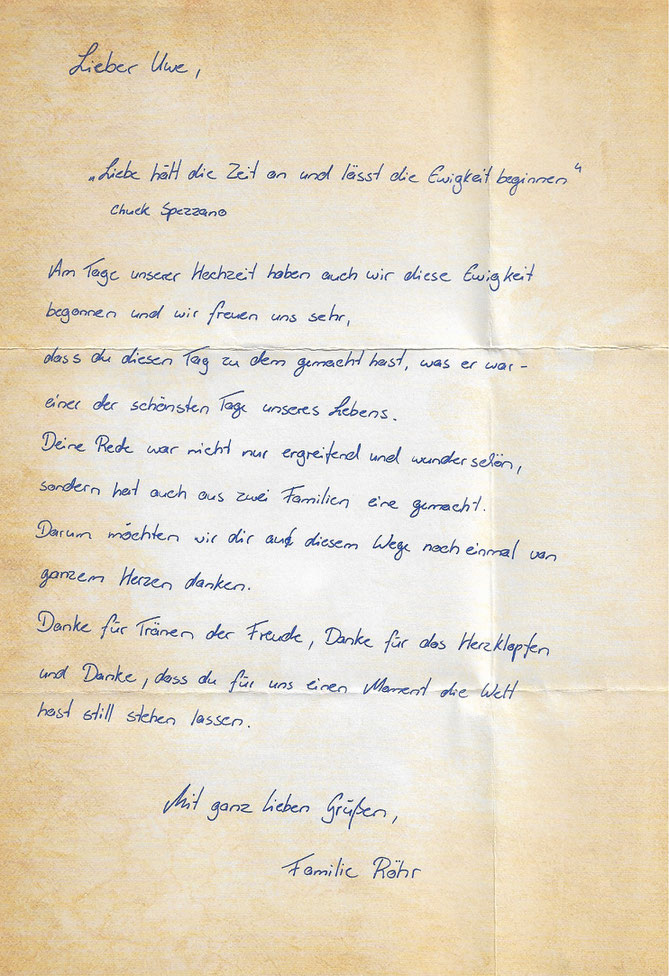 Lieber Uwe,
„Liebe hält die Zeit an und lässt die Ewigkeit beginnen“
Chuck Spezzano
Am Tage unserer Hochzeit haben auch wir diese Ewigkeit
begonnen und wir freuen uns sehr,
dass du diesen Tag zu dem gemacht hast, was er war -
einer der schönsten Tage unseres Lebens.
Deine Rede war nicht nur ergreifend und wunderschön,
sondern hat auch aus zwei Familien eine gemacht.
Darum möchten wir dir auf diesem Wege noch einmal von
ganzem Herzen danken.
Danke für Tränen der Freude, Danke für das Herzklopfen
und Danke, dass du für uns einen Moment die Welt
hast still stehen lassen.
Mit ganz lieben Grüßen,
Familie Röhr